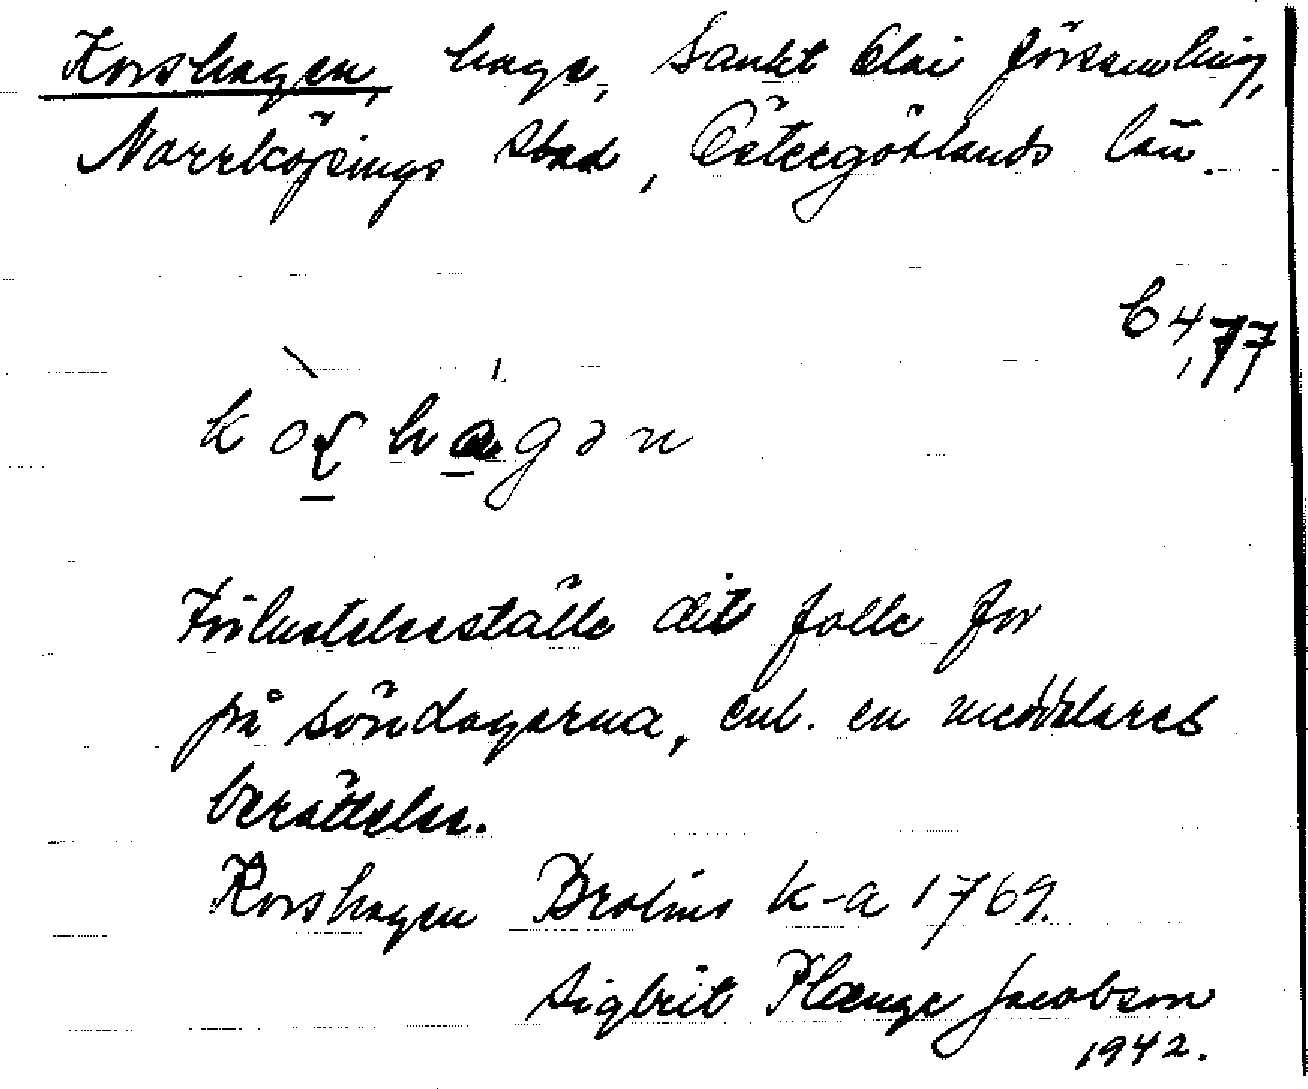 Korshagen, hage, Sankt Olai församling,
Norrköpings stad, Östergötlands län.
C 4,77
Förlustelseställe dit folk for
på söndagarna, enl. en meddelares
berättelse.
Korshagen Brolins k-a 1769.
Sigbrit Plænge Jacobson
1942.